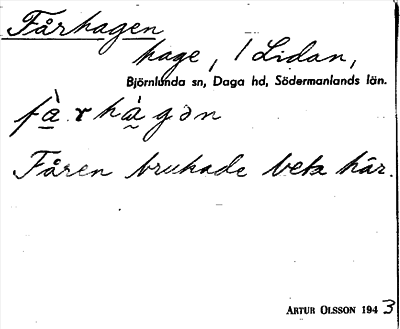 Fårhagen
hage, / Lidan,
Björnlunda sn, Daga hd, Södermanlands län.
Fåren brukade beta här.
ARTUR OLSSON 1943